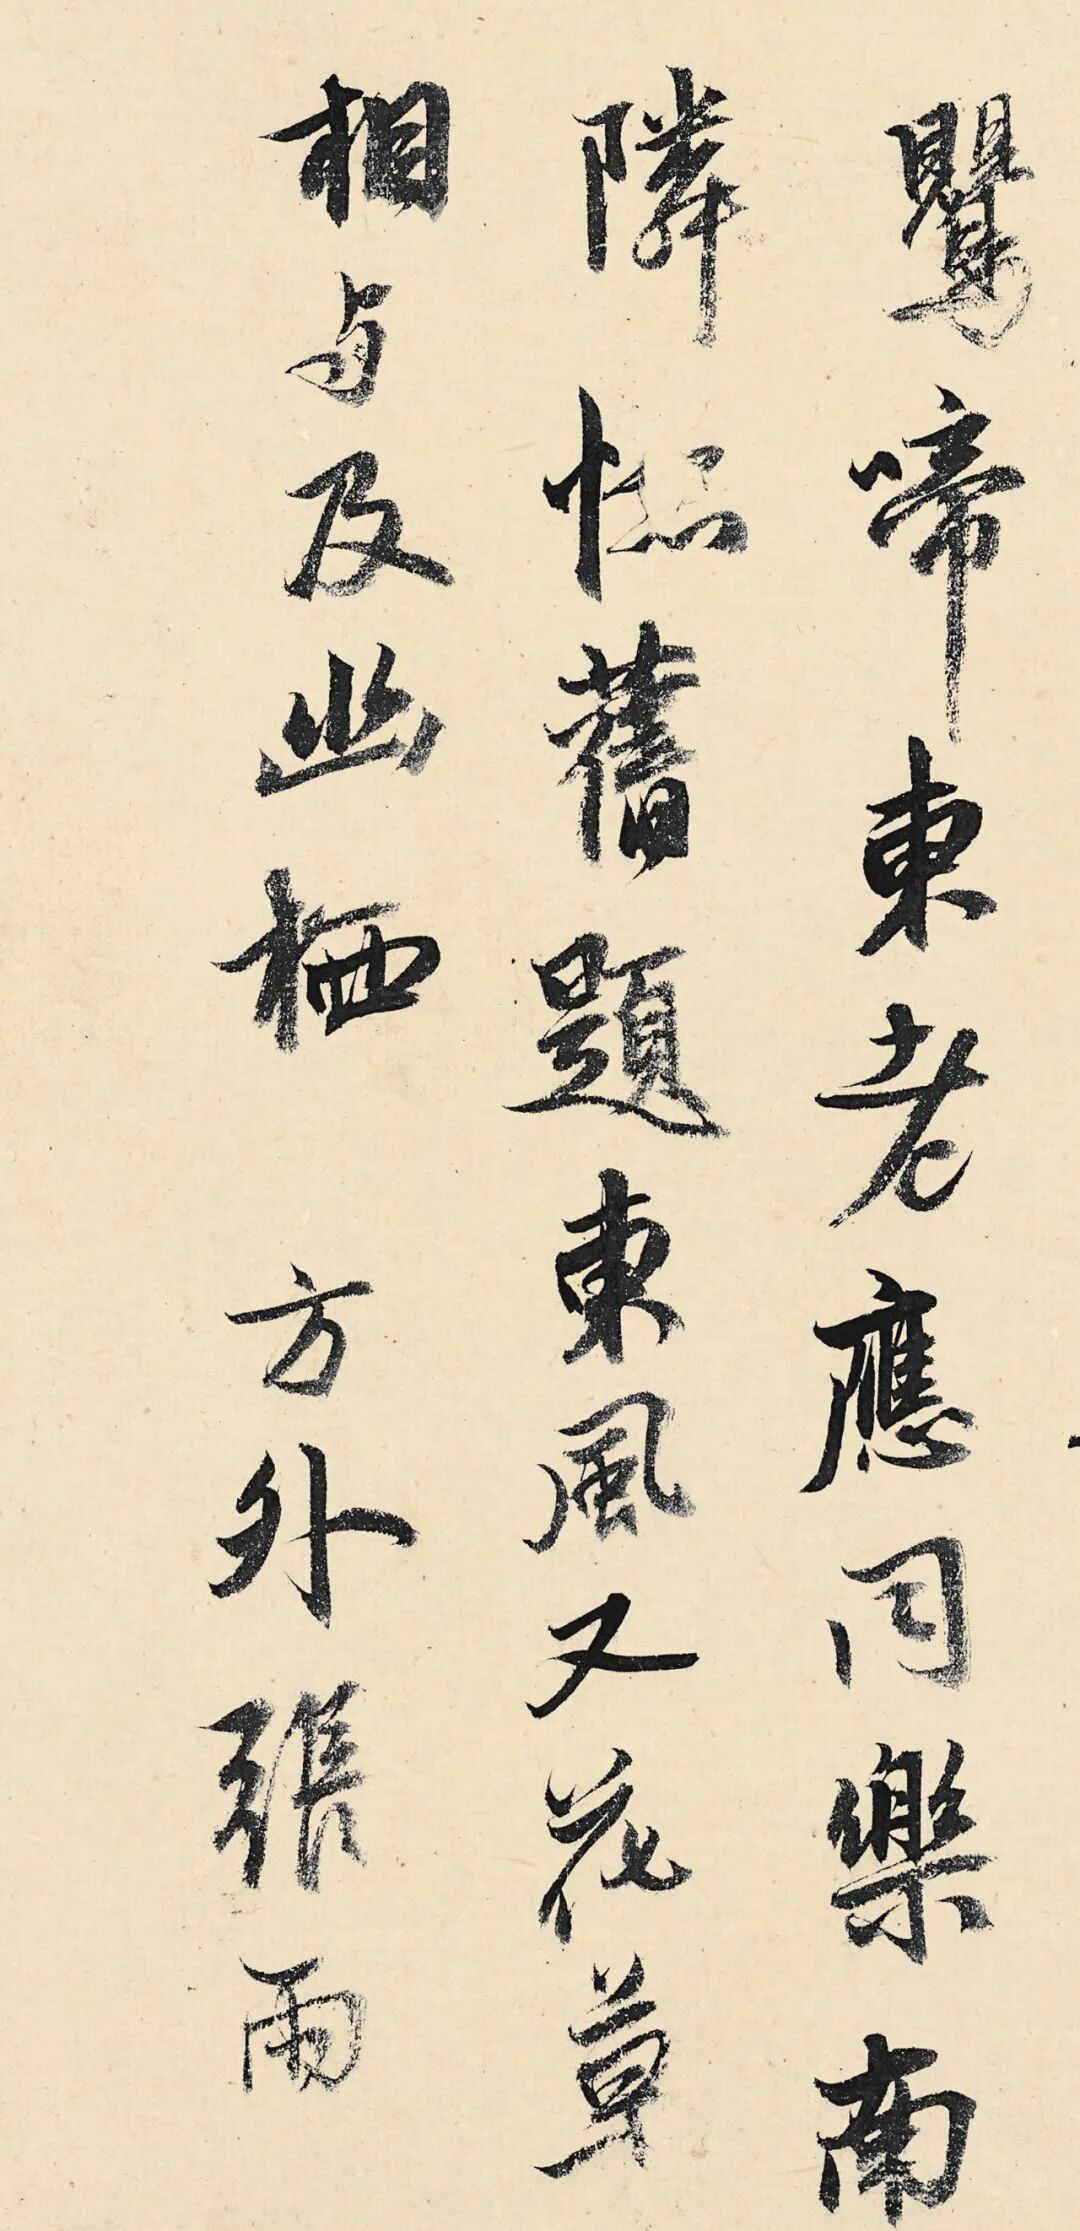 鸎啼東老應同樂南
隣舊題東風又花草
相与及幽栖 方外張雨